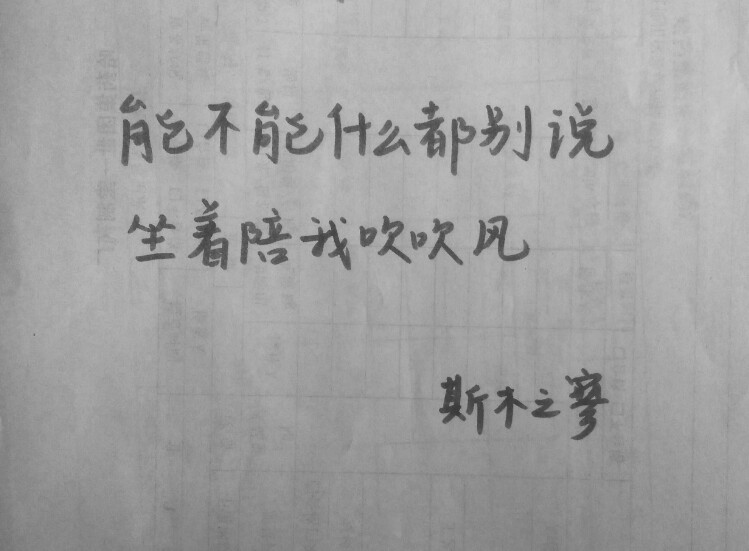 能不能什么都别说
坐着陪我吹吹风
斯木之寥